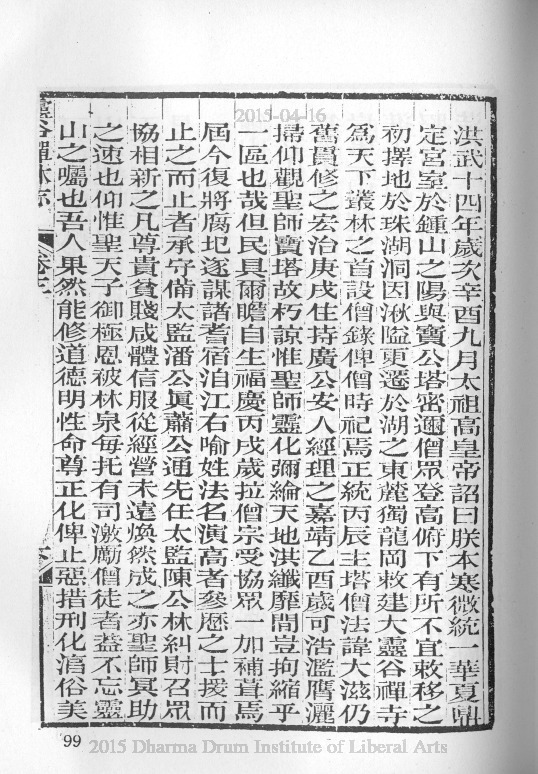 洪武十四年歲次辛酉九月太祖高皇帝詔曰朕本寒微統一華夏鼎
定宮室於鍾山之陽與寶公塔密邇僧眾登高俯下有所不宜敕移之
初擇地於珠湖洞因湫隘更遷於湖之東麓獨龍岡敕建大靈谷禪寺
爲天下叢林之首設僧錄俾僧時祀焉正統丙辰主塔僧法諱大滋仍
舊貫修之宏治庚戌住持廣公安人經理之嘉靖乙酉歲可浩濫膺灑
掃仰觀聖師寶塔故朽諒惟聖師靈化彌綸天地洪纖靡間豈拘縮乎
一區也哉但民具爾瞻自生福慶丙戌歲拉僧宗受協眾一加補葺焉
屆今復將腐圮逐謀諸耆宿洎江右喻姓法名演高者參歷之士援而
止之而止者承守備太監潘公眞蕭公通先任太監陳公林糾財召眾
協相新之凡尊貴貧賤咸體信服從經營未遠煥然成之亦聖師冥助
之速也仰惟聖天子御極恩被林泉每托有司激勵僧徒者葢不忘靈
山之囑也吾人果然能修道德明性命尊正化俾止惡措刑化淆俗美
靈谷禪林志
卷三
99
2015-04-16
2015 Dharma Drum Institute of Liberal Arts